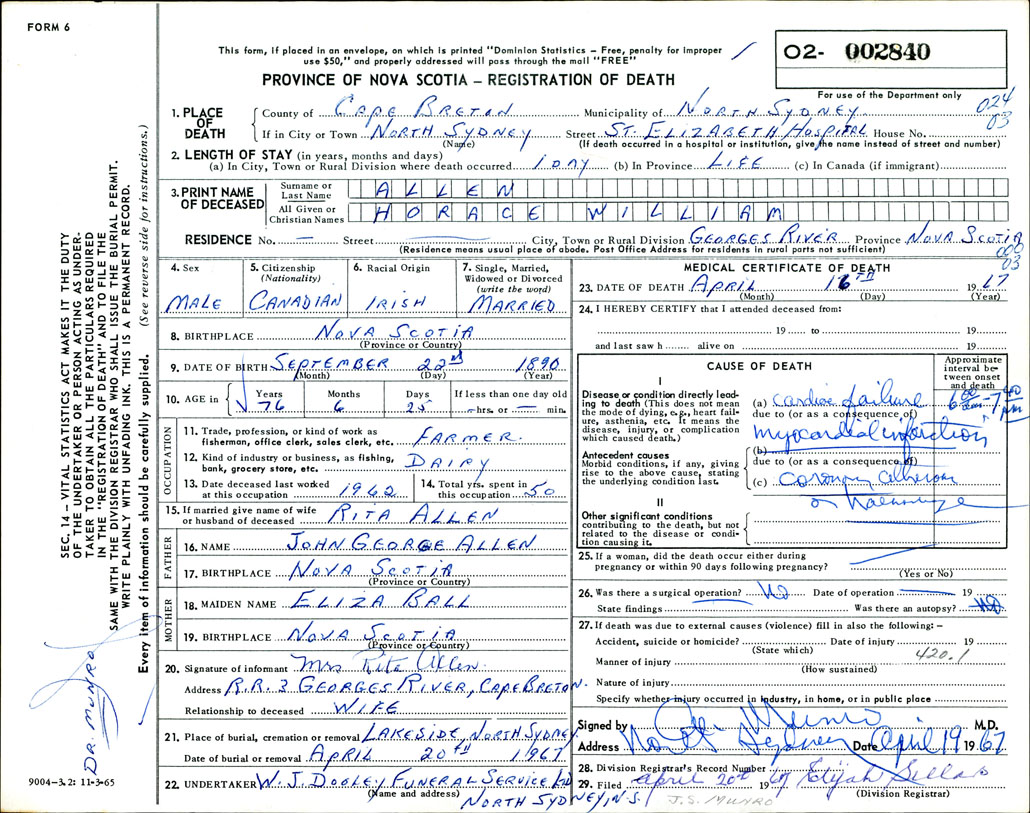 FORM 6
This form, if placed in an envelope, on which is printed "Dominion Statistics – Free, penalty for improper
use $50," and properly addressed will pass through the mail "FREE"
O2- 002840
PROVINCE OF NOVA SCOTIA – REGISTRATION OF DEATH
For use of the Department only
024
03
1. PLACE OF DEATH County of CAPE BRETON Municipality of NORTH SYDNEY
If in City or Town NORTH SYDNEY Street ST. ELIZABETH HOSPITAL House No.
(Name) (If death occurred in a hospital or institution, give the name instead of street and number)
2. LENGTH OF STAY (in years, months and days)
(a) In City, Town or Rural Division where death occurred 1 DAY (b) In Province LIFE (c) In Canada (if immigrant)
3. PRINT NAME OF DECEASED Surname or Last Name ALLEN
All Given or Christian Names HORACE WILLIAM
RESIDENCE No. — Street City, Town or Rural Division GEORGES RIVER Province NOVA SCOTIA
(Residence means usual place of abode. Post Office Address for residents in rural parts not sufficient)
000
03
4. Sex MALE
5. Citizenship (Nationality) CANADIAN
6. Racial Origin IRISH
7. Single, Married, Widowed or Divorced (write the word) MARRIED
8. BIRTHPLACE NOVA SCOTIA
(Province or Country)
9. DATE OF BIRTH SEPTEMBER 22nd 1890
(Month) (Day) (Year)
10. AGE in Years Months Days If less than one day old
76 6 25 hrs. or — min.
OCCUPATION
11. Trade, profession, or kind of work as
fisherman, office clerk, sales clerk, etc. FARMER.
12. Kind of industry or business, as fishing,
bank, grocery store, etc. DAIRY
13. Date deceased last worked at this occupation 1962
14. Total yrs. spent in this occupation 50
15. If married give name of wife
or husband of deceased RITA ALLEN
FATHER
16. NAME JOHN GEORGE ALLEN
17. BIRTHPLACE NOVA SCOTIA
(Province or Country)
MOTHER
18. MAIDEN NAME ELIZA BALL
19. BIRTHPLACE NOVA SCOTIA
(Province or Country)
20. Signature of informant Mrs Rita Allen
Address R.R. 3 GEORGES RIVER, CAPE BRETON.
Relationship to deceased WIFE
21. Place of burial, cremation or removal LAKESIDE, NORTH SYDNEY
Date of burial or removal APRIL 20TH 1967
22. UNDERTAKER W. J. DOOLEY FUNERAL SERVICE LTD
(Name and address) NORTH SYDNEY, N.S.
MEDICAL CERTIFICATE OF DEATH
23. DATE OF DEATH APRIL 16TH 19 67
(Month) (Day) (Year)
24. I HEREBY CERTIFY that I attended deceased from:
19 to 19
and last saw h alive on 19
CAUSE OF DEATH
Approximate interval between onset and death
I
Disease or condition directly leading to death (This does not mean
the mode of dying, e.g., heart failure, asthenia, etc. It means the
disease, injury, or complication
which caused death.)
(a) cardiac failure
due to (or as a consequence of)
myocardial infarction
(b)
Antecedent causes
Morbid conditions, if any, giving
rise to the above cause, stating
the underlying condition last.
due to (or as a consequence of)
(c) coronary
or
II
Other significant conditions
contributing to the death, but not
related to the disease or condition causing it.
25. If a woman, did the death occur either during
pregnancy or within 90 days following pregnancy?
(Yes or No)
26. Was there a surgical operation? No Date of operation 19
State findings Was there an autopsy? No
27. If death was due to external causes (violence) fill in also the following: –
Accident, suicide or homicide? Date of injury 19
(State which) 420.1
Manner of injury
(How sustained)
Nature of injury
Specify whether injury occurred in industry, in home, or in public place
Signed by Munro M.D.
Address North Sydney Date April 19 19 67
28. Division Registrar's Record Number
29. Filed April 20th 19 67 Elijah Sellars
(Division Registrar)
J.S. MUNRO
SEC. 14 – VITAL STATISTICS ACT MAKES IT THE DUTY
OF THE UNDERTAKER OR PERSON ACTING AS UNDERTAKER TO OBTAIN ALL THE PARTICULARS REQUIRED
IN THE "REGISTRATION OF DEATH" AND TO FILE THE
SAME WITH THE DIVISION REGISTRAR WHO SHALL ISSUE THE BURIAL PERMIT.
WRITE PLAINLY WITH UNFADING INK. THIS IS A PERMANENT RECORD.
Every item of information should be carefully supplied. (See reverse side for instructions.)
DR. MUNRO
9004-3.2: 11-3-65